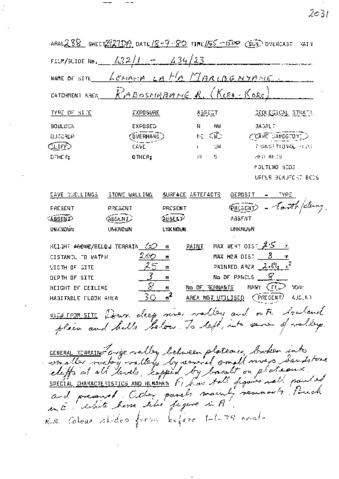 2031
AREA 238 SHEET 2927DA DATE 18-9-80 TIME 1145-1500 SUN OVERCAST RAIN
FILM/SLIDE No. 432/1 - 434/23
NAME OF SITE LEHAHA LA HA
CATCHMENT AREA
TYPE OF SITE EXPOSURE ASPECT GEOLOGICAL STRATA
BOULDER EXPOSED N NW BASALT
OUTCROP OVERHANG NE CAVE SANDSTONE
CLIFF CAVE E SW TRANSITIONAL BEDS
OTHER: OTHER: SE S RED BEDS
MOLTENO BEDS
UPPER BEAUFORT BEDS
CAVE DWELLINGS STONE WALLING SURFACE ARTEFACTS DEPOSIT - TYPE
PRESENT PRESENT PRESENT PRESENT - Earth/dung
ABSENT ABSENT ABSENT ABSENT
UNKNOWN UNKNOWN UNKNOWN UNKNOWN
HEIGHT ABOVE/BELOW TERRAIN 60 m PAINT MAX VERT DIST 2.5 m
DISTANCE TO WATER 200 m MAX HOR DIST 8 m
WIDTH OF SITE 25 m PAINTED AREA m²
DEPTH OF SITE 3 m No OF PANELS 8
HEIGHT OF CEILING 8 m No OF REMNANTS MANY FEW NONE
HABITABLE FLOOR AREA 30 m² AREA NOT UTILISED PRESENT
VIEW FROM SITE Down deep river valley and on R. lowland
plain and hills below. To left, into series of valleys.
GENERAL TERRAIN Large valley between plateaux, broken into
smaller valleys by several small rivers, sandstone
cliffs at all levels, capped by basalt on plateaux.
SPECIAL CHARACTERISTICS AND REMARKS F1 has tall figures well painted
and preserved. Other panels mainly remnants.
in E. White horse like figure in A.
N.B. Colour slides from before 1-1-79